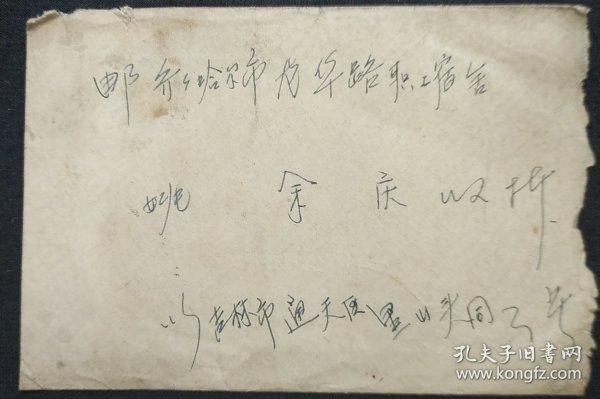 邮齐齐哈尔市 华路职工宿舍
姚余庆收拆
吉林市通天区里山头同3号
孔夫子旧书网
www.kongfz.com